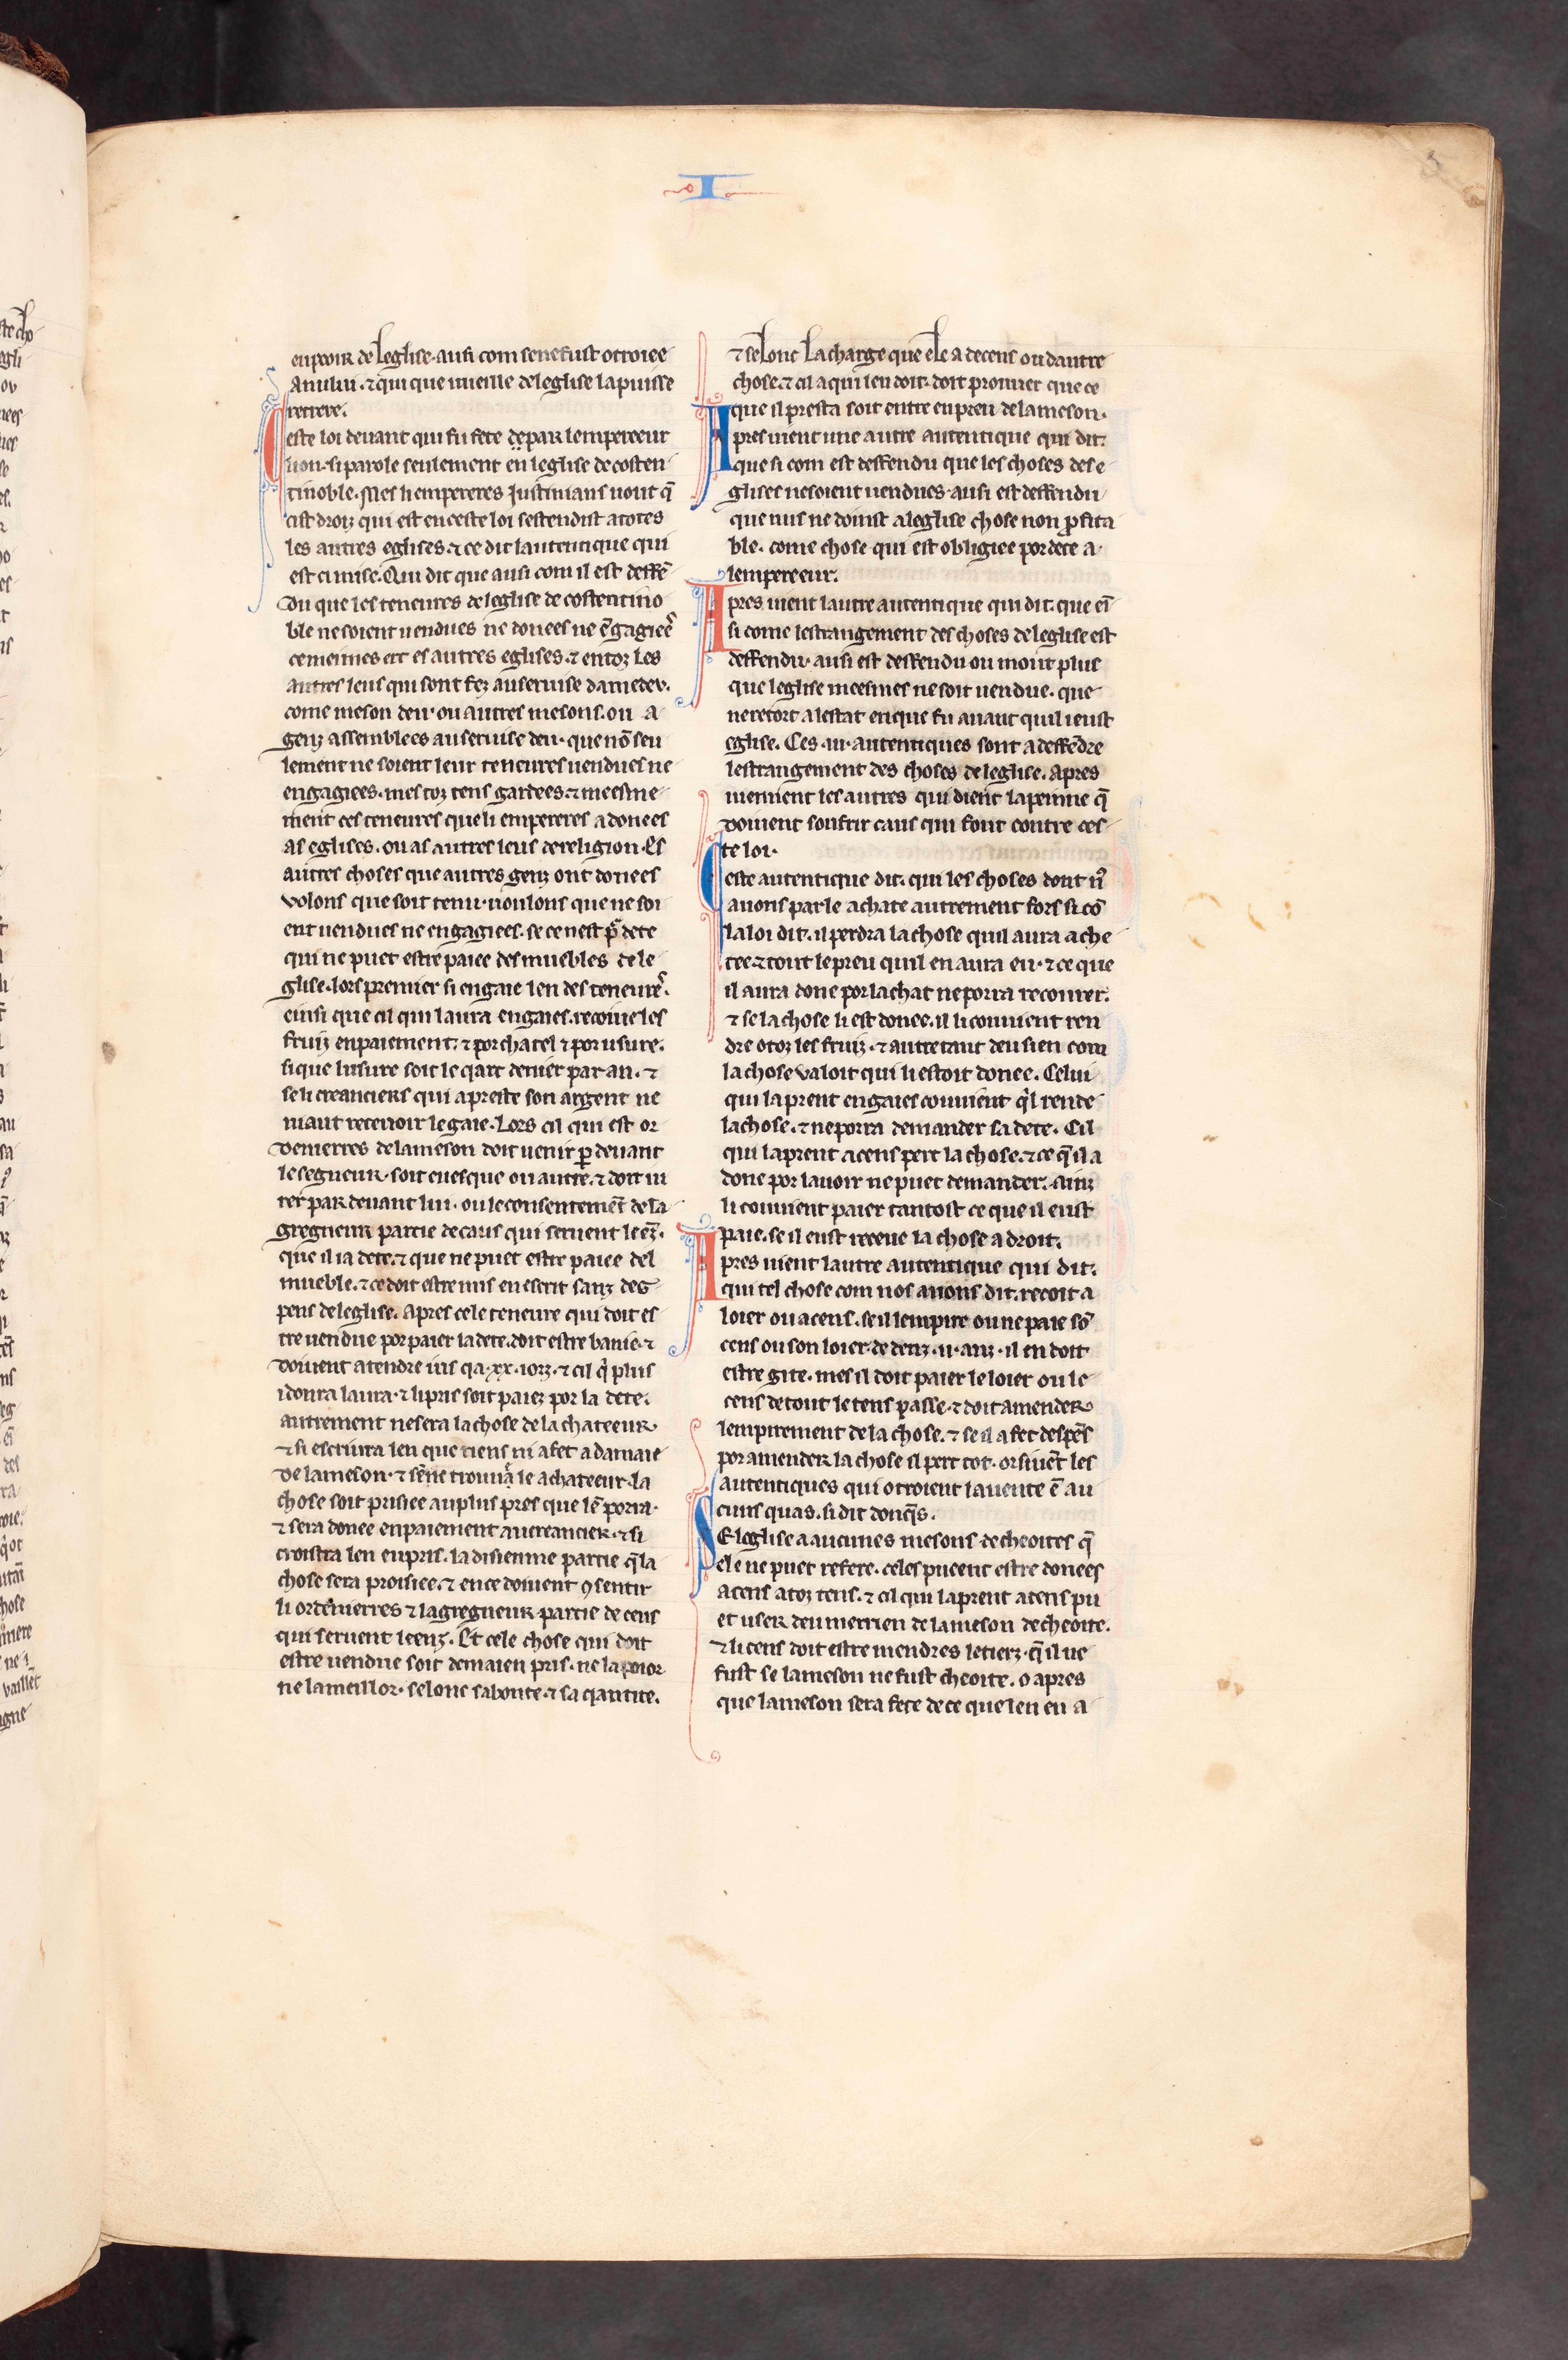 I
5
en poir de leglise. ausi com se ne fust otroiee
A nului. ⁊ qui que uueille de leglise la puisse
retrere.
Ceste loi deuant qui fu fete de par lempereeur
lion. si parole seulement en leglise de costen
tinoble. Mes li empereres Justinians uout q̄
cist droiz qui est en ceste loi sestendist a totes
les autres eglises. ⁊ ce dit lautentique qui
est ci mise. Qui dit que ausi com il est deffē
du que les teneures de leglise de costentino
ble ne soient uendues ne donees ne ēgagiees
ce meimes ert es autres eglises. ⁊ en toz les
autres leus qui sont fez au seruise damedeu.
come meson deu. ou autres mesons. ou a
genz assemblees au seruise deu. que nō seu
lement ne soient leur teneures uendues ne
engagiees. mes toz tens gardees. ⁊ meesme
ment ces teneures que li empereres a donees
as eglises. ou as autres leus de religion. Es
autres choses que autres genz ont donees
volons que soit tenu. uoulons que ne soi
ent uendues ne engagiees. se ce nest pͬ dete
qui ne puet estre paiee des muebles de le
glise. lors premier si engaie len des teneures.
einsi que cil qui laura en gaies. recoiue les
fruiz en paiement. ⁊ por chatel ⁊ por usure.
si que lusure soit le qart denier par an. ⁊
se li creanciers qui a preste son argent ne
uiaut receuoir le gaie. Lors cil qui est or
deneerres de la meson doit uenir ꝑ deuant
le segneur. soit euesque ou autre. ⁊ doit iu
rer par deuant lui. ou le consentemēt de la
gregneur partie de caus qui seruent leēz.
que il i a dete. ⁊ que ne puet estre paiee del
mueble. ⁊ ce doit estre mis en escrit sanz des
pens de leglise. Apres cele teneure qui doit es
tre uendue por paier la dete. doit estre banie. ⁊
doiuent atendre ius qa .xx. iorz. ⁊ cil q̇ plus
i donra laura. ⁊ li pris soit paiez por la dete.
autrement ne sera la chose de lachateeur.
⁊ si escriura len que riens ni a fet a damaie
de la meson. ⁊ sēne trouua le achateeur. la
chose soit prisiee au plus pres que lē porra.
⁊ sera donee en paiement au creancier. ⁊ si
croistra len en pris. la disienme partie q̄ la
chose sera proisiee. ⁊ en ce doiuent ꝯsentir
li ordenierres ⁊ la gregneur partie de ceus
qui seruent leenz. Et cele chose qui doit
estre uendue soit demaien pris. ne la poior
ne la meillor. selonc sa bonte. ⁊ sa qantite.
⁊ selonc la charge que ele a de cens ou dautre
chose. ⁊ cil a qui len doit. doit prouuer que ce
que il presta soit entre en preu de la meson.
Apres uient une autre autentique qui dit.
que si com est deffendu que les choses de se
glises ne soient uendues. ausi est deffendu
que nus ne doinst a leglise chose non ꝓfita
ble. come chose qui est obligiee por dete a
lempereeur.
Apres uient lautre autentique qui dit. que eī
si come lestrangement des choses de leglise est
deffendu. ausi est deffendu ou mout plus
que leglise meesmes ne soit uendue. que
ne retort a lestat en que fu auant quil i eust
eglise. Ces .iii. autentiques sont a deffēdre
lestrangement des choses de leglise. Apres
uiennent les autres qui dient la peinne q̄
doiuent soufrir caus qui font contre ces
te loi.
Ceste autentique dit. qui les choses dont nͦ
auons parle achate autrement fors si cō
la loi dit. il perdra la chose quil aura ache
tee. ⁊ tout le preu quil en aura eu. ⁊ ce que
il aura done por lachat ne porra recourer.
⁊ se la chose li est donee. il li couuient ren
dre o toz les fruiz. ⁊ autretant deu sien com
la chose valoit qui li estoit donee. Celui
qui la prent en gaies couuient q̇l rende
la chose. ⁊ ne porra demander sa dete. Cil
qui la prent a cens pert la chose. ⁊ ce q̄ il a
done por lauoir ne puet demander. Ainz
li couuient paier tantost ce que il eust
paie. se il eust receue la chose a droit.
Apres uient lautre autentique qui dit.
qui tel chose com nos auons dit. recoit a
loier ou a cens. se il lempire ou ne paie sō
cens ou son loier dedenz .ii. anz. il en doit
estre gite. mes il doit paier le loier ou le
cens de tout le tens passe. ⁊ doit amender
lempirement de la chose. ⁊ se il a fet despēs
por amender la chose il pert tot. or siuēt les
autentiques qui otroient la uente ē au
cuns quas. si dit donq̄s.
SE leglise a aucunes mesons decheoites q̄
ele ne puet refere. celes pueent estre donees
a cens a toz tens. ⁊ cil qui la prent a cens pu
et user deu merrien de la meson decheoite.
⁊ li cens doit estre mendres le tierz. q̄ il ne
fust se la meson ne fust cheoite. o apres
que la meson sera fete de ce que len en a